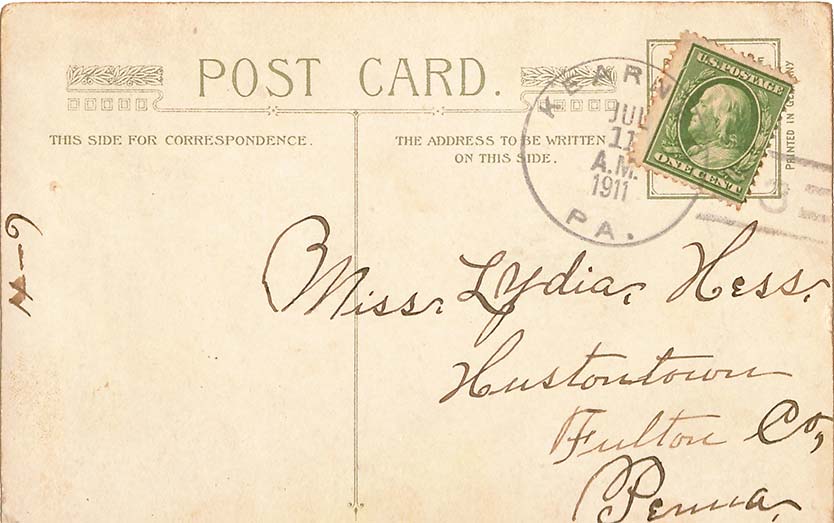 POST CARD.
THIS SIDE FOR CORRESPONDENCE.
THE ADDRESS TO BE WRITTEN
ON THIS SIDE.
JUL
11
A.M.
1911
PA.
U.S. POSTAGE
ONE CENT
PRINTED IN
3
Miss. Lydia, Hess.
Hustontown
Fulton Co,
Penna,